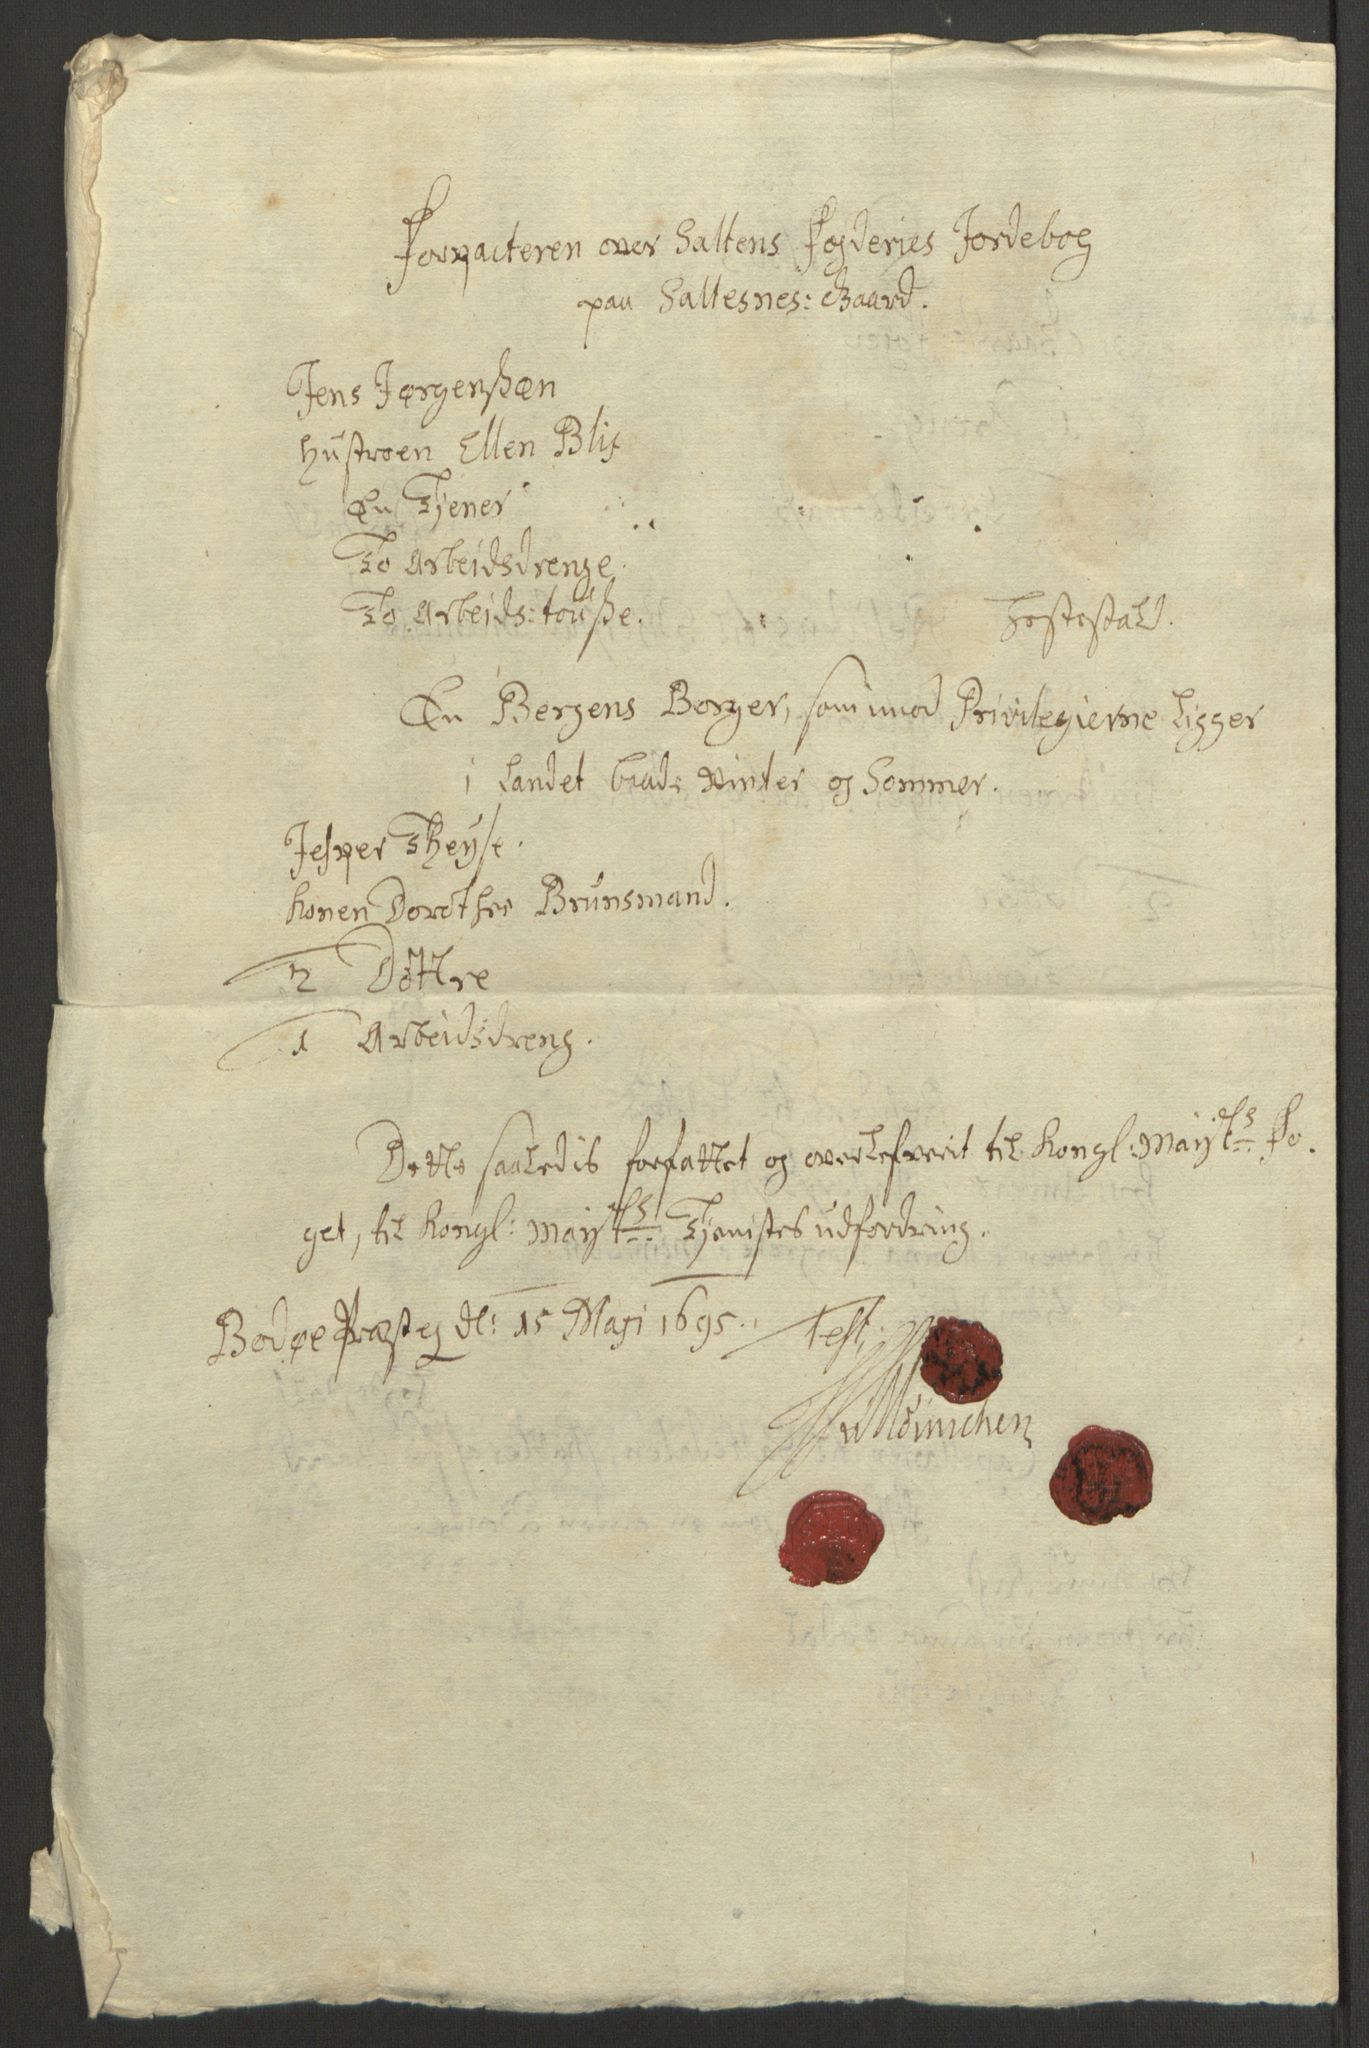 Forpacteren over Saltens Fogderies Jordebog
paa Saltesnes: Gaard.
Jens Jørgenßøn
Hustroen Ellen Blix
En Tjener
To Arbeidsdrenge.
To Arbeids: touße. Hestestald.
En Bergens Borger, som imod Privilegierne Ligger
i Landet baade Winter og Sommer.
Jesper Theyse.
Konen Dorothee Brunsmand.
2 Døttre
1 Arbeidsdreng.
Dette saaledis forfattet og overlefverit til Kongl: Mayts Fo-
get, til Kongl: Mayts Tjenistes udfordring.
Bodøe Præsteg dl: 15 Maji 1695. Test:
Münichen